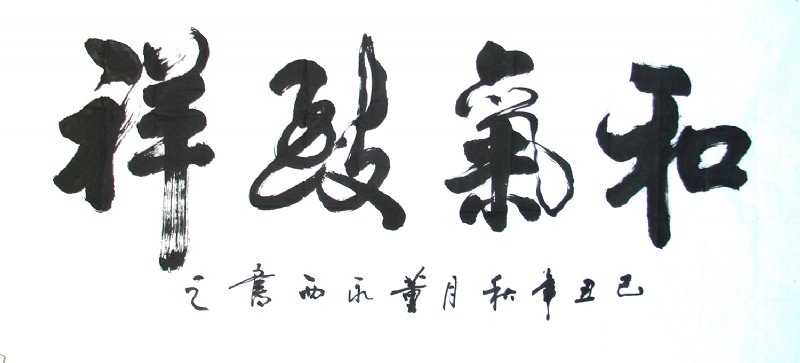 和氣致祥
己丑年秋月董永西書之